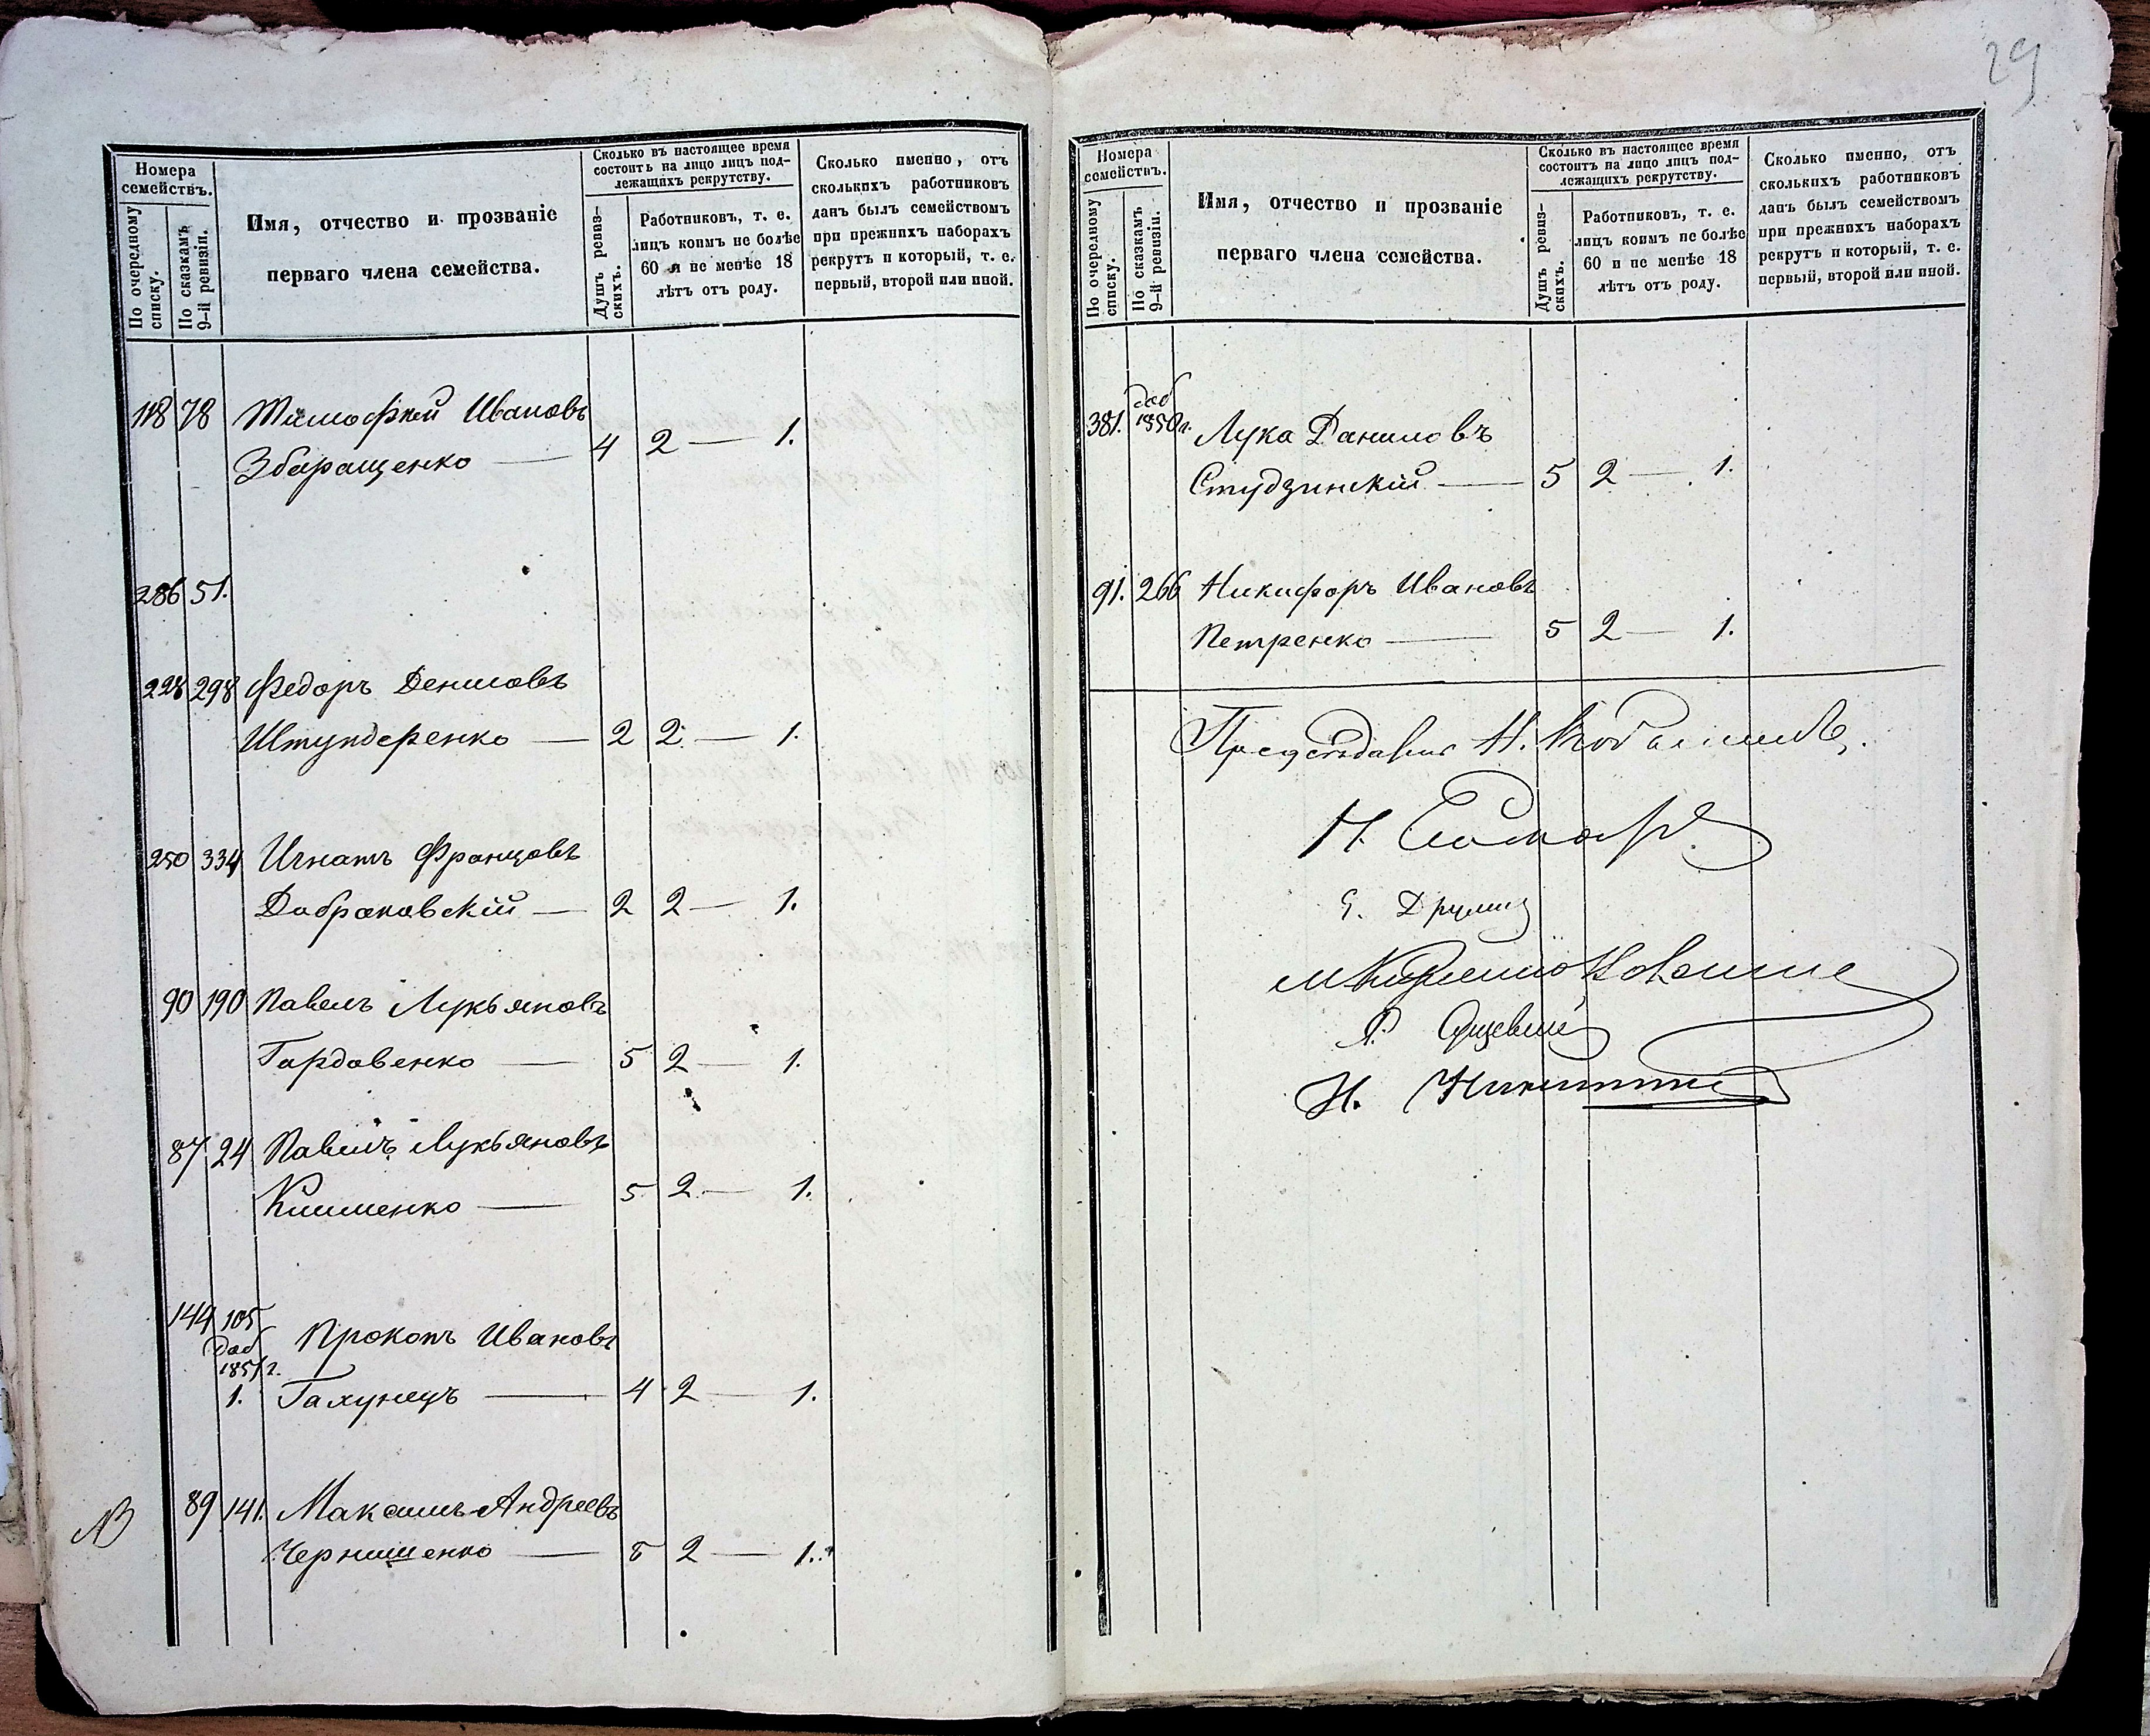 29
Номера
семействъ.
По очередному
списку.
По сказкамъ
9-й ревизіи.
Имя, отчество и прозваніе
перваго члена семейства.
Сколько въ настоящее время
состоитъ на лицо лицъ под-
лежащихъ рекрутству.
Душъ ревиз-
скихъ.
Работниковъ, т. е.
лицъ коимъ не болѣе
60 и не менѣе 18
лѣтъ отъ роду.
Сколько именно, отъ
сколькихъ работниковъ
данъ былъ семействомъ
при прежнихъ наборахъ
рекрутъ и который, т. е.
первый, второй или иной.
118 78 Тимофѣй Ивановъ
Збаращенко — 4 2 — 1.
286 51.
228 298 Федоръ Денисовъ
Штундеренко — 2 2 — 1.
250 334 Игнатъ Францовъ
Добраковскій — 2 2 — 1.
90 190 Павелъ Лукьяновъ
Гордовенко — 5 2 — 1.
87 24 Павелъ Лукьяновъ
Клименко — 5 2 — 1.
144 105 Прокопъ Ивановъ
доб
1851 г.
1. Галунецъ — 4 2 — 1.
NB 89 141. Максимъ Андреевъ
Чернишенко — 5 2 — 1.
Номера
семействъ.
По очередному
списку.
По сказкамъ
9-й ревизіи.
Имя, отчество и прозваніе
перваго члена семейства.
Сколько въ настоящее время
состоитъ на лицо лицъ под-
лежащихъ рекрутству.
Душъ ревиз-
скихъ.
Работниковъ, т. е.
лицъ коимъ не болѣе
60 и не менѣе 18
лѣтъ отъ роду.
Сколько именно, отъ
сколькихъ работниковъ
данъ былъ семействомъ
при прежнихъ наборахъ
рекрутъ и который, т. е.
первый, второй или иной.
доб
381. 1850 г. Лука Даниловъ
Студзинскій — 5 2 — 1.
91. 266 Никифоръ Ивановъ
Петренко — 5 2 — 1.
Н.
Н.
Н. Никитин